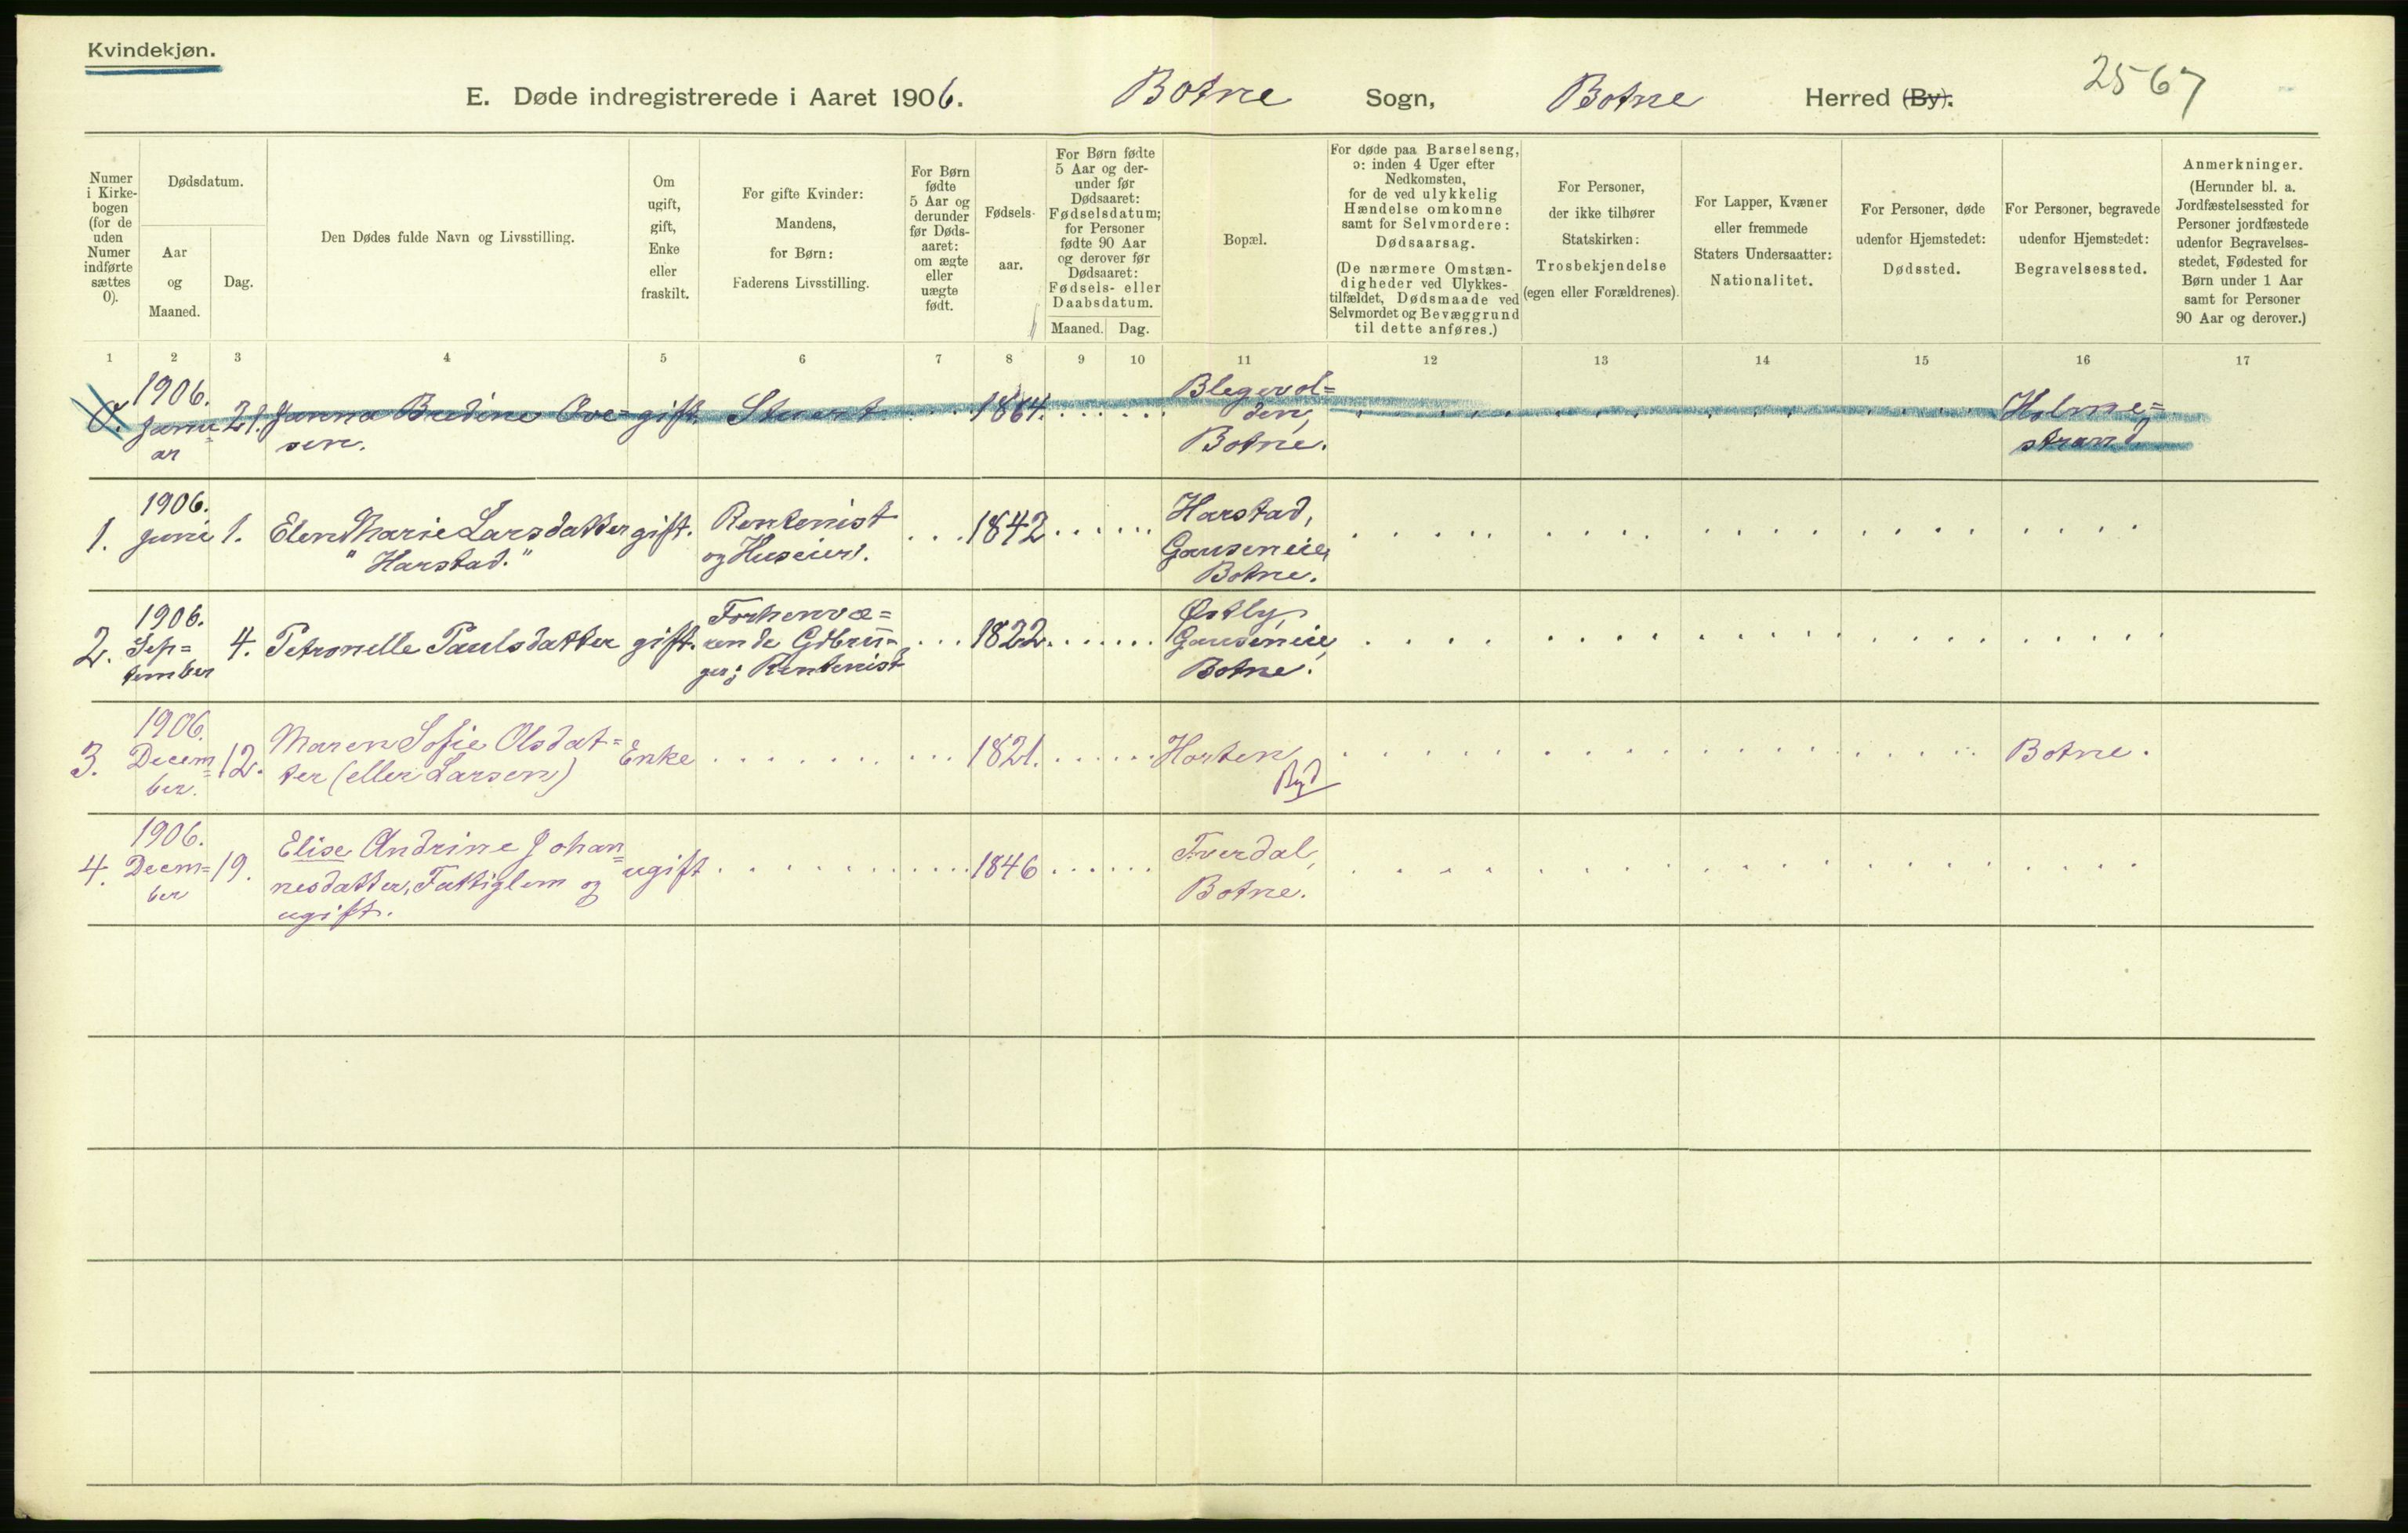 Kvindekjøn.
E. Døde indregistrerede i Aaret 1906. Botne Sogn, Botne Herred (By).
2567
Numer i Kirkebogen (for de uden Numer indførte sættes 0).
Dødsdatum.
Aar og Maaned.
Dag.
Den Dødes fulde Navn og Livsstilling.
Om ugift, gift, Enke eller fraskilt.
For gifte Kvinder: Mandens, for Børn: Faderens Livsstilling.
For Børn fødte 5 Aar og derunder før Dødsaaret: om ægte eller uægte født.
Fødselsaar.
For Børn fødte 5 Aar og derunder før Dødsaaret: Fødselsdatum; for Personer fødte 90 Aar og derover før Dødsaaret: Fødsels- eller Daabsdatum.
Maaned. Dag.
Bopæl.
For døde paa Barselseng, ɔ: inden 4 Uger efter Nedkomsten, for de ved ulykkelig Hændelse omkomne samt for Selvmordere: Dødsaarsag.
(De nærmere Omstændigheder ved Ulykkestilfældet, Dødsmaade ved Selvmordet og Bevæggrund til dette anføres.)
For Personer, der ikke tilhører Statskirken: Trosbekjendelse (egen eller Forældrenes).
For Lapper, Kvæner eller fremmede Staters Undersaatter: Nationalitet.
For Personer, døde udenfor Hjemstedet: Dødssted.
For Personer, begravede udenfor Hjemstedet: Begravelsessted.
Anmerkninger. (Herunder bl. a. Jordfæstelsessted for Personer jordfæstede udenfor Begravelsesstedet, Fødested for Børn under 1 Aar samt for Personer 90 Aar og derover.)
1 2 3 4 5 6 7 8 9 10 11 12 13 14 15 16 17
1906. Januar 21. Janna Bredine Ovesen. gift. Stuert 1864. Blegevolden, Botne. Holmestrand
1. 1906. Juni 1. Elen Marie Larsdatter "Harstad." gift. Rentenist og Huseier. 1842 Harstad, Gauseneie, Botne.
2. 1906. September 4. Petronelle Paulsdatter gift. Forhenværende Gdbruger; Rentenist 1822 Østly, Gauseneie, Botne.
3. 1906. December. 12. Maren Sofie Olsdatter (eller Larsen) Enke 1821. Horten Botne.
4. 1906. December 19. Elise Andrine Johannesdatter, Fattiglem og ugift. ugift 1846 Tverdal, Botne.